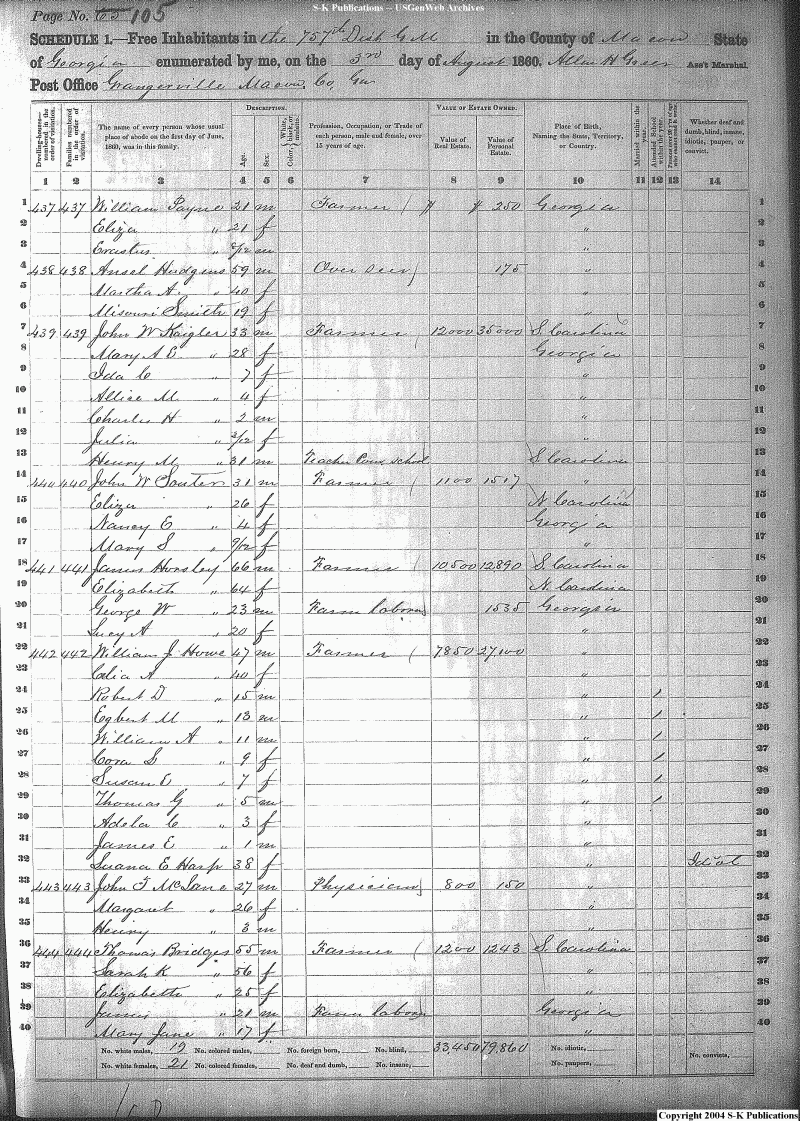 S-K Publications -- USGenWeb Archives
Page No. 65 105
SCHEDULE 1.—Free Inhabitants in the 757th Dist G M in the County of Macon State
of Georgia enumerated by me, on the 3rd day of August 1860. Ass't Marshal.
Post Office Grangerville Macon Co, Ga
Dwelling-houses—numbered in the order of visitation.
Families numbered in the order of visitation.
The name of every person whose usual place of abode on the first day of June, 1860, was in this family.
DESCRIPTION.
Age.
Sex.
Color, White, black, or mulatto.
Profession, Occupation, or Trade of each person, male and female, over 15 years of age.
VALUE OF ESTATE OWNED.
Value of Real Estate.
Value of Personal Estate.
Place of Birth, Naming the State, Territory, or Country.
Married within the year.
Attended School within the year.
Whether deaf and dumb, blind, insane, idiotic, pauper, or convict.
1 2 3 4 5 6 7 8 9 10 11 12 13 14
1 437 437 William Payne 21 m Farmer $ $ 250 Georgia 1
2 Eliza " 21 f " 2
3 Erastus 8/12 m " 3
4 438 438 Ansel Hudgens 59 m Over seer 175 " 4
5 Martha A. " 40 f " 5
6 Misouri Smith 19 f " 6
7 439 439 John W Kaigler 33 m Farmer 12000 35000 S Carolina 7
8 Mary A E " 28 f Georgia 8
9 Ida C " 7 f " 9
10 Allice M " 4 f " 10
11 Charles H " 2 m " 11
12 Julia " 3/12 f " 12
13 Henry M " 31 m Teacher Com school S Carolina 13
14 440 440 John W Souter 31 m Farmer 1100 1517 " 14
15 Eliza " 26 f N Carolina 15
16 Nancy E " 4 f Georgia 16
17 Mary S " 9/12 f " 17
18 441 441 James Horsley 66 m Farmer 10500 12890 S Carolina 18
19 Elizabeth " 64 f N. Carolina 19
20 George W " 23 m Farm laborer 1535 Georgia 20
21 Lucy A " 20 f " 21
22 442 442 William J Howe 47 m Farmer 7850 27100 " 22
23 Celia A " 40 f " 23
24 Robert D " 15 m " 1 24
25 Egbert M " 13 m " 1 25
26 William A " 11 m " 1 26
27 Cora S " 9 f " 1 27
28 Susan E " 7 f " 1 28
29 Thomas G " 5 m " 1 29
30 Adela C " 3 f " 30
31 James E " 1 m 31
32 Luana E Harp 38 f " Idiot 32
33 443 443 John F McLane 27 m Physician 800 150 " 33
34 Margaret " 26 f " 34
35 Henry " 3 m " 35
36 444 444 Thomas Bridges 55 m Farmer 1200 1243 S. Carolina 36
37 Sarah K " 56 f " 37
38 Elizabeth " 25 f " 38
39 James " 21 m Farm labor Georgia 39
40 Mary Jane " 17 f " 40
No. white males, 19 No. colored males, No. foreign born, No. blind, 33,450 79,860 No. idiotic,
No. white females, 21 No. colored females, No. deaf and dumb, No. insane, No. paupers, No. convicts,
Copyright 2004 S-K Publications